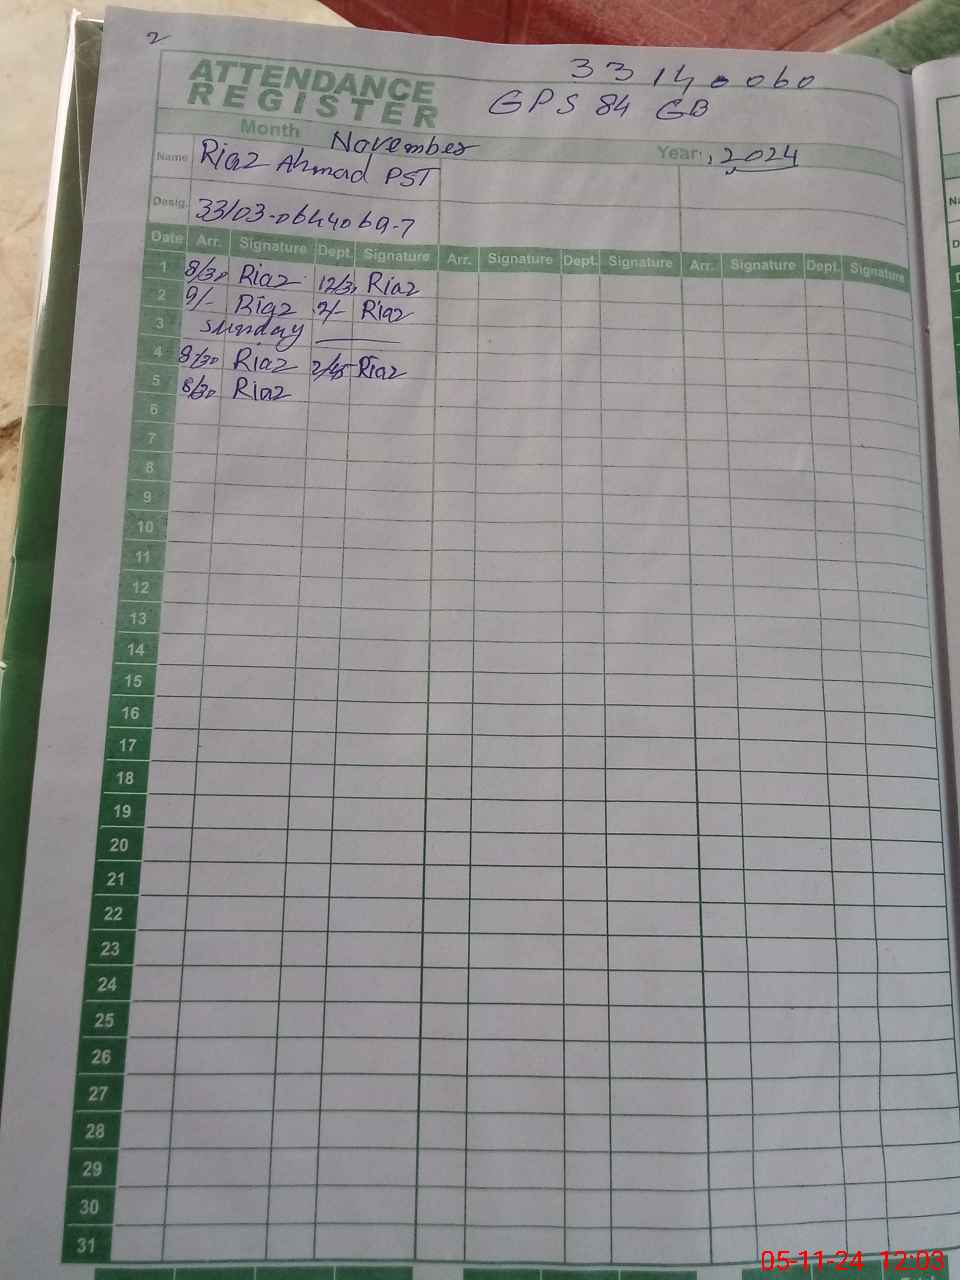 2
ATTENDANCE REGISTER
33140060
GPS 84 GB
Month November Year: 2024
Name Riaz Ahmad PST
Desig. 33103-0644069-7
Date Arr. Signature Dept. Signature Arr. Signature Dept. Signature Arr. Signature Dept. Signature
1 8/30 Riaz 12/30 Riaz
2 9/- Riaz 2/- Riaz
3 Sunday
4 8/30 Riaz 2/45 Riaz
5 8/30 Riaz
6
7
8
9
10
11
12
13
14
15
16
17
18
19
20
21
22
23
24
25
26
27
28
29
30
31
05-11-24 12:03